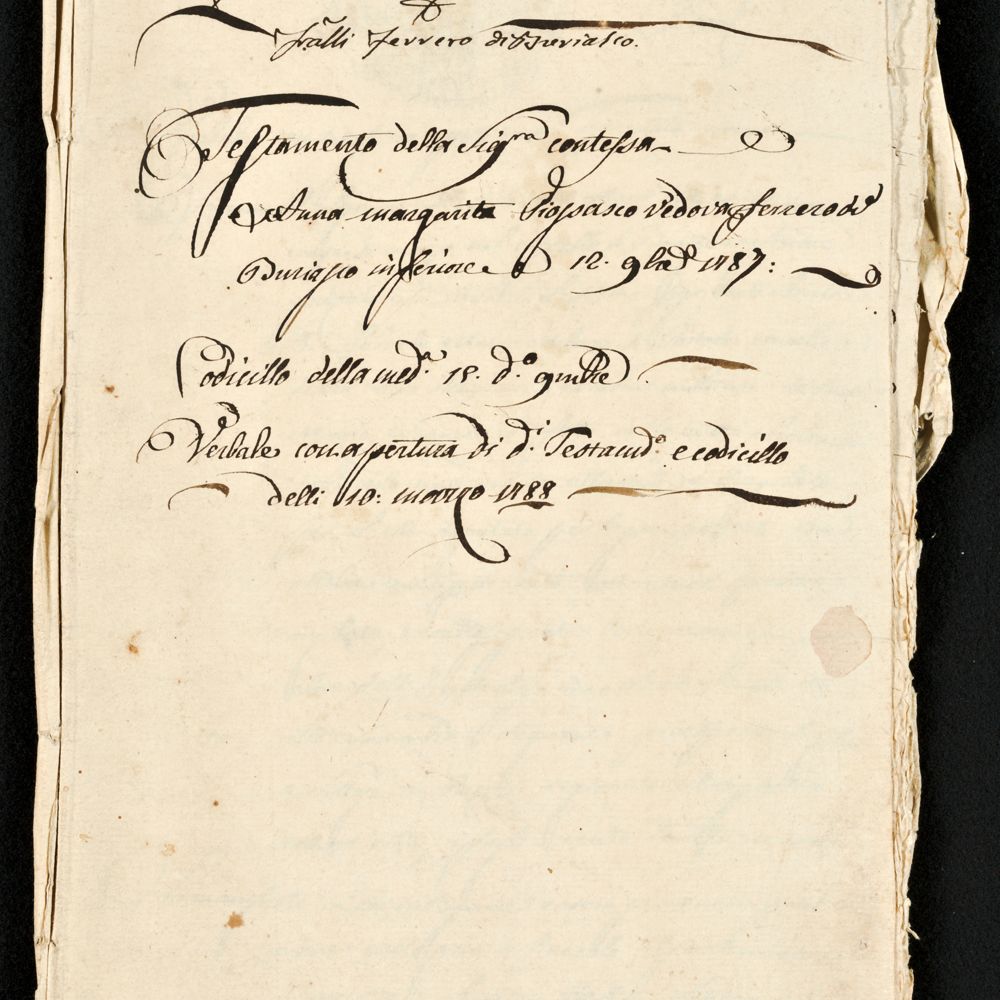 fr̃alli Ferrero di Buriasco.
Testamento della Sig.ra contessa
Anna margarita Piossasco vedova Ferrero di
Buriasco inferiore 12. 9bre 1787:
Codicillo della med.a 15. d.o 9mbre
Verbale con apertura di d.i Testam.o e codicillo
delli 10: marzo 1788